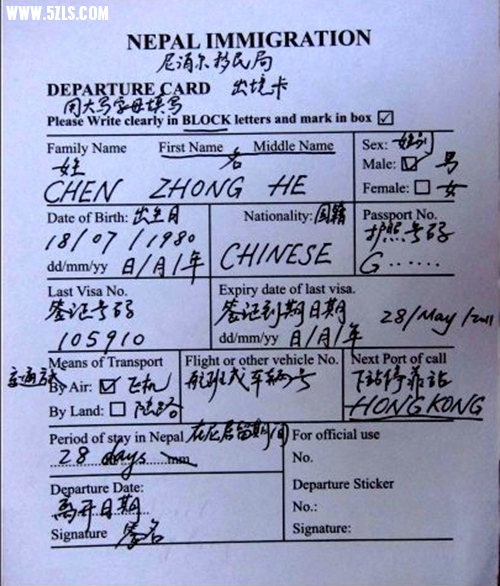 WWW.5ZLS.COM
NEPAL IMMIGRATION
尼泊尔移民局
DEPARTURE CARD 出境卡
用大写字母填写
Please Write clearly in BLOCK letters and mark in box ☑
Family Name First Name Middle Name
姓 名
CHEN ZHONG HE
Sex: 性别
Male: ☑ 男
Female: ☐ 女
Date of Birth: 出生日
18/07/1980
dd/mm/yy 日/月/年
Nationality: 国籍
CHINESE
Passport No.
护照号码
G······
Last Visa No.
签证号码
105910
Expiry date of last visa.
签证到期日期 28/May/2011
dd/mm/yy 日/月/年
Means of Transport
交通方式
By Air: ☑ 飞机
By Land: ☐ 陆路
Flight or other vehicle No.
航班或车辆号
Next Port of call
下站停靠站
HONGKONG
Period of stay in Nepal 在尼居留期间
28 days mm
For official use
No.
Departure Date:
离开日期
Signature 签名
Departure Sticker
No.:
Signature: